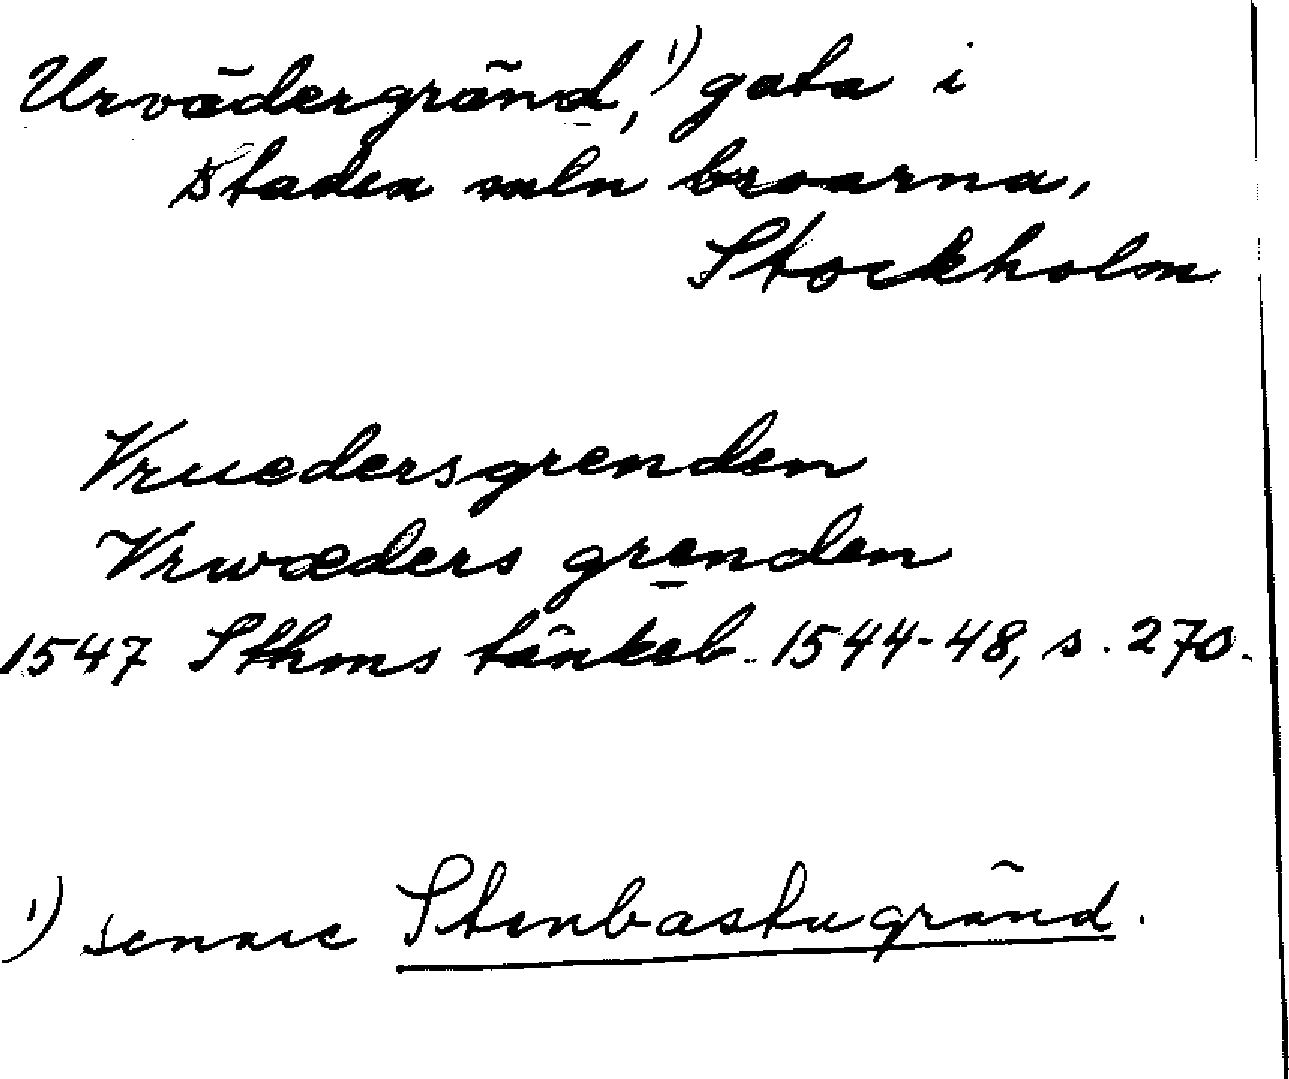 Urvädergränd,¹) gata i
Staden mln broarna,
Stockholm
Vruedersgrenden
Vrwæders grenden
1547 Sthms tänkeb. 1544-48, s. 270.
¹) senare Stenbastugränd.